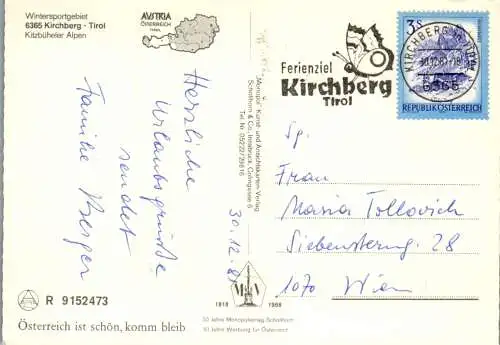 Wintersportgebiet
6365 Kirchberg - Tirol
Kitzbüheler Alpen
AUSTRIA
ÖSTERREICH
TIROL
Herzliche
Urlaubsgrüße
sendet
Familie Berger
30.12.81
R 9152473
Österreich ist schön, komm bleib
"Monopol"-Kunst- und Ansichtskarten-Verlag
Schöllhorn & Co., Innsbruck,
Tel. Nr. 05222/29816
1918 1968
50 Jahre Monopolverlag Schöllhorn
50 Jahre Werbung für Österreich
Ferienziel
Kirchberg
Tirol
3 S
KIRCHBERG IN TIROL
6365
REPUBLIK ÖSTERREICH
Sp.
Frau
Maria Tollovich
Siebensterng. 28
1070 Wien